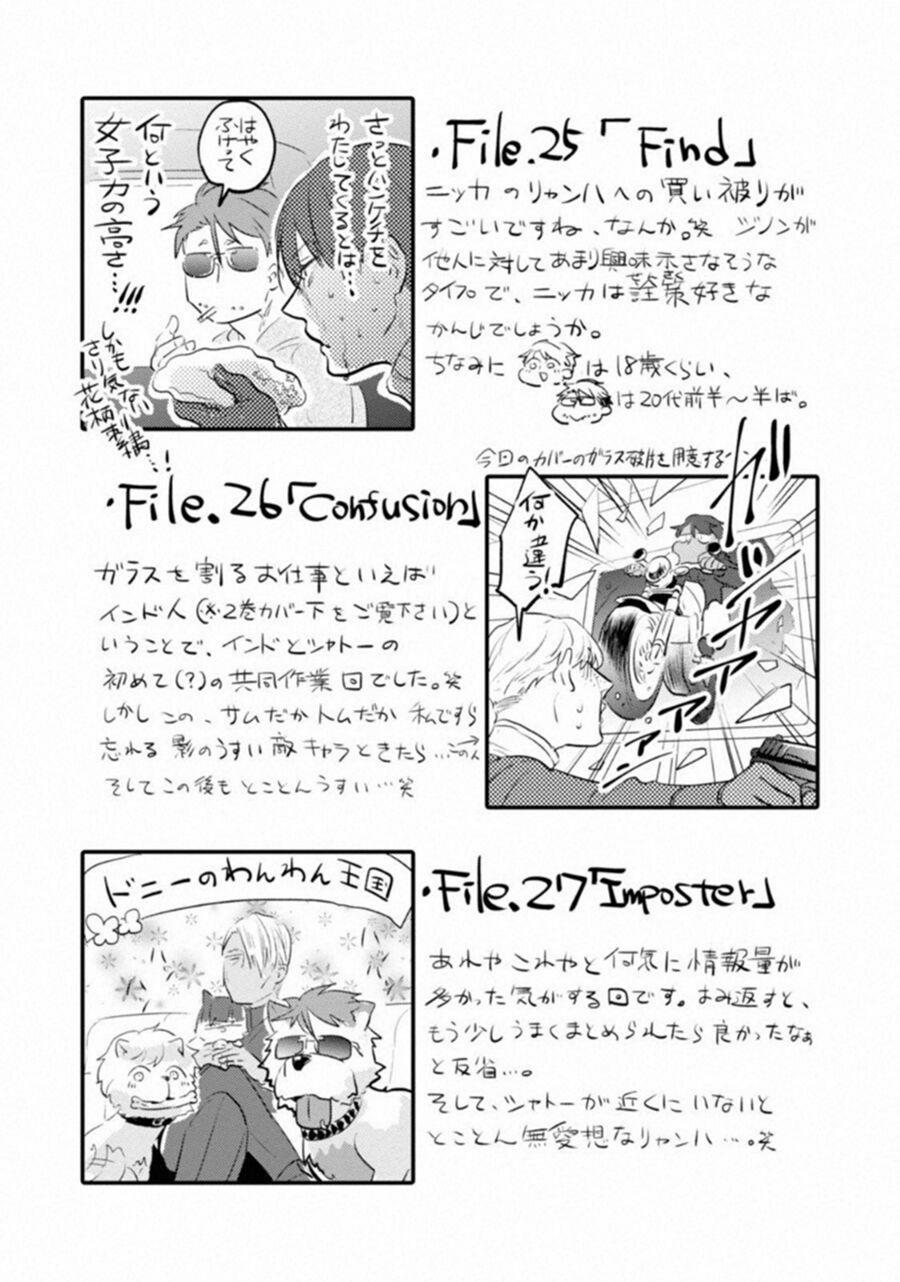 ・File.25「Find」
ニッカのリャンハへの買い被りが
すごいですね、なんか。笑 ジノンが
他人に対してあまり興味示さなそうな
タイプで、ニッカは詮索好きな
せんさく
かんじでしょうか。
ちなみに は18歳くらい、
は20代前半〜半ば。
さっとハンケチを
わたしてくるとは…
はやく
ふけって
何という
女子力の高さ…!!!
しかも気ない
さり花柄刺繍…!
今回のカバーのガラス破片を用意する
・File.26「Confusion」
ガラスを割るお仕事といえば
インド人(※2巻カバー下をご覧下さい)と
いうことで、インドとシャトーの
初めて(?)の共同作業回でした。笑
しかしこの、サムだかトムだか私ですら
忘れる影のうすい敵キャラときたら…この人→
そしてこの後もとことんうすい…笑
何か違う!
ギャアアアア
・File.27「Imposter」
あれやこれやと何気に情報量が
多かった気がする回です。よみ返すと、
もう少しうまくまとめられたら良かったなぁ
と反省…。
そして、シャトーが近くにいないと
とことん無愛想なリャンハ…。笑
ドニーのわんわん王国